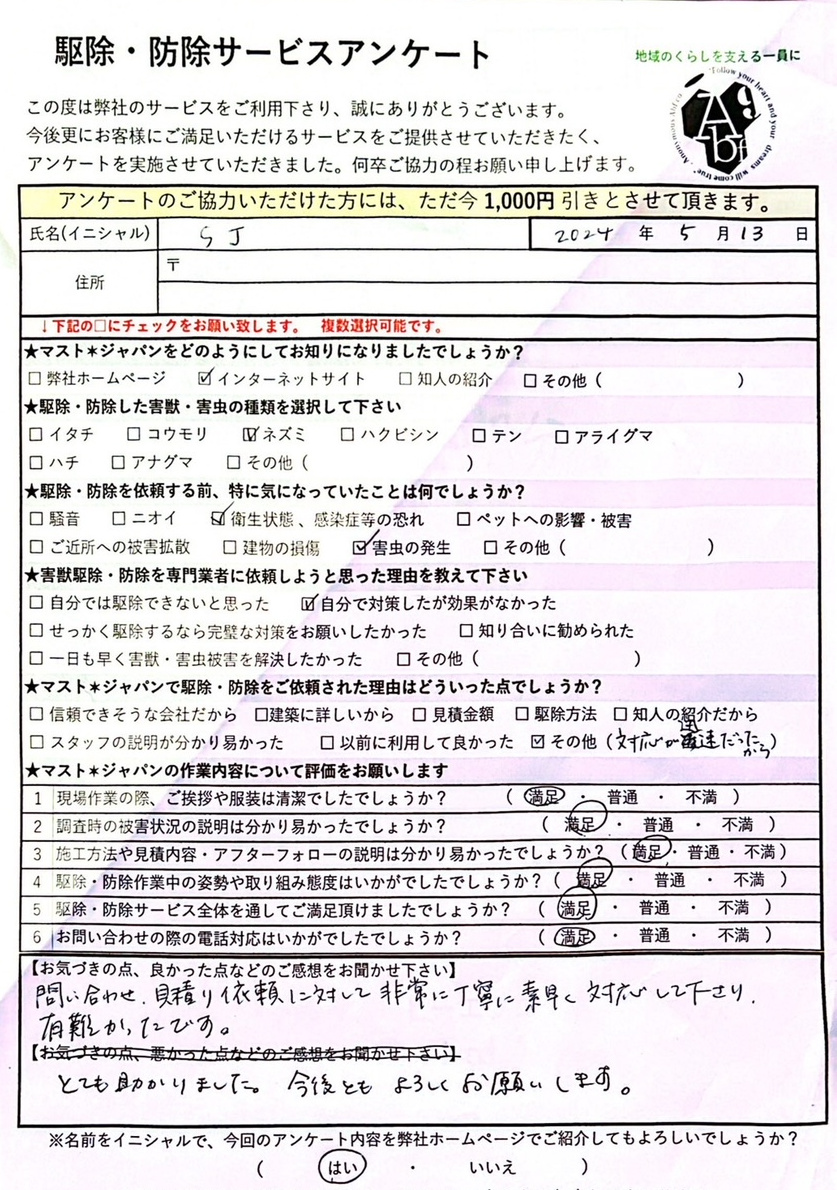 駆除・防除サービスアンケート
地域のくらしを支える一員に
"Follow your heart and your dreams will come true"
この度は弊社のサービスをご利用下さり、誠にありがとうございます。
今後更にお客様にご満足いただけるサービスをご提供させていただきたく、
アンケートを実施させていただきました。何卒ご協力の程お願い申し上げます。
アンケートのご協力いただけた方には、ただ今 1,000円 引きとさせて頂きます。
氏名(イニシャル) S J 2024 年 5 月 13 日
住所 〒
↓下記の□にチェックをお願い致します。 複数選択可能です。
★マスト＊ジャパンをどのようにしてお知りになりましたでしょうか？
□ 弊社ホームページ ☑ インターネットサイト □ 知人の紹介 □ その他 ( )
★駆除・防除した害獣・害虫の種類を選択して下さい
□ イタチ □ コウモリ ☑ ネズミ □ ハクビシン □ テン □ アライグマ
□ ハチ □ アナグマ □ その他 ( )
★駆除・防除を依頼する前、特に気になっていたことは何でしょうか？
□ 騒音 □ ニオイ ☑ 衛生状態 、感染症等の恐れ □ ペットへの影響・被害
□ ご近所への被害拡散 □ 建物の損傷 ☑ 害虫の発生 □ その他 ( )
★害獣駆除・防除を専門業者に依頼しようと思った理由を教えて下さい
□ 自分では駆除できないと思った ☑ 自分で対策したが効果がなかった
□ せっかく駆除するなら完璧な対策をお願いしたかった □ 知り合いに勧められた
□ 一日も早く害獣・害虫被害を解決したかった □ その他 ( )
★マスト＊ジャパンで駆除・防除をご依頼された理由はどういった点でしょうか？
□ 信頼できそうな会社だから □ 建築に詳しいから □ 見積金額 □ 駆除方法 □ 知人の紹介だから
□ スタッフの説明が分かり易かった □ 以前に利用して良かった ☑ その他 (対応が迅速だったから)
★マスト＊ジャパンの作業内容について評価をお願いします
1 現場作業の際、ご挨拶や服装は清潔でしたでしょうか？ ( 満足 ・ 普通 ・ 不満 )
2 調査時の被害状況の説明は分かり易かったでしょうか？ ( 満足 ・ 普通 ・ 不満 )
3 施工方法や見積内容・アフターフォローの説明は分かり易かったでしょうか？ ( 満足 ・ 普通 ・ 不満 )
4 駆除・防除作業中の姿勢や取り組み態度はいかがでしたでしょうか？ ( 満足 ・ 普通 ・ 不満 )
5 駆除・防除サービス全体を通してご満足頂けましたでしょうか？ ( 満足 ・ 普通 ・ 不満 )
6 お問い合わせの際の電話対応はいかがでしたでしょうか？ ( 満足 ・ 普通 ・ 不満 )
【お気づきの点、良かった点などのご感想をお聞かせ下さい】
問い合わせ、見積り依頼に対して非常に丁寧に素早く対応して下さり、
有難かったです。
【お気づきの点、悪かった点などのご感想をお聞かせ下さい】
とても助かりました。今後ともよろしくお願いします。
※名前をイニシャルで、今回のアンケート内容を弊社ホームページでご紹介してもよろしいでしょうか？
( はい ・ いいえ )